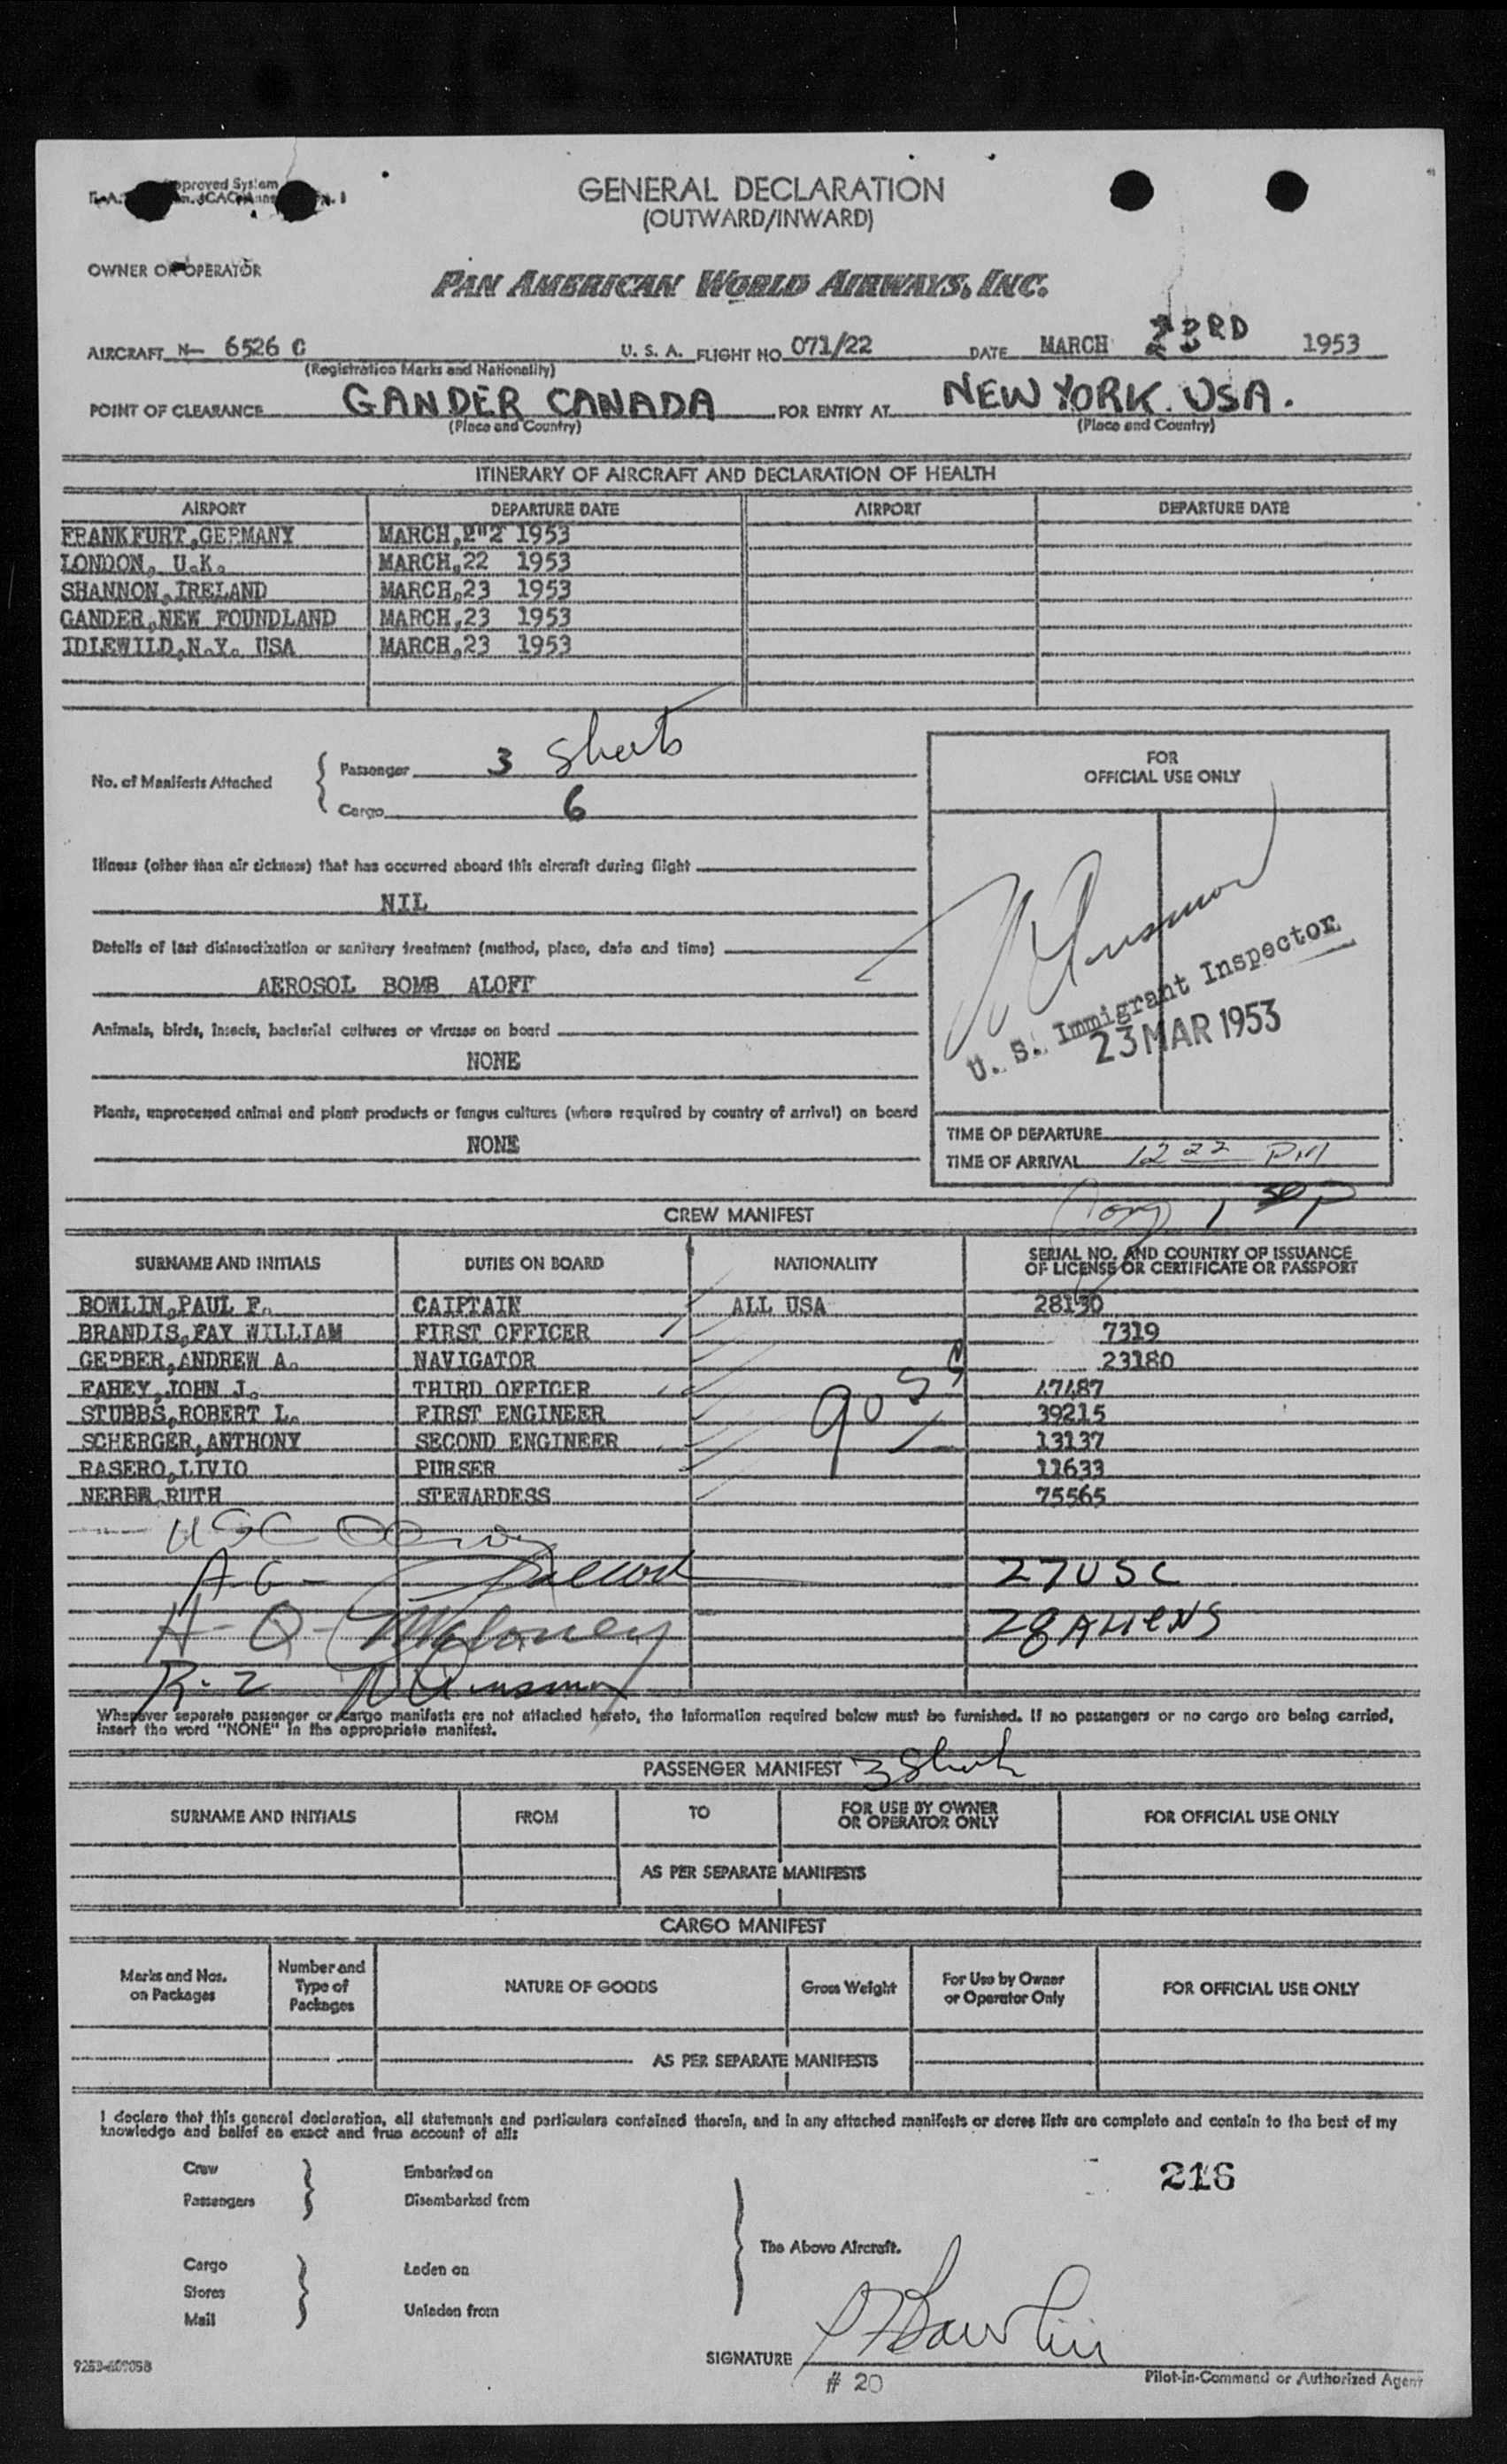 GENERAL DECLARATION
(OUTWARD/INWARD)
OWNER OR OPERATOR
PAN AMERICAN WORLD AIRWAYS, INC.
AIRCRAFT N- 6526 C U. S. A. FLIGHT NO. 071/22 DATE MARCH 23RD 1953
(Registration Marks and Nationality)
POINT OF CLEARANCE GANDER CANADA FOR ENTRY AT NEW YORK. USA.
(Place and Country) (Place and Country)
ITINERARY OF AIRCRAFT AND DECLARATION OF HEALTH
AIRPORT DEPARTURE DATE AIRPORT DEPARTURE DATE
FRANKFURT,GERMANY MARCH, 1953
LONDON, U.K. MARCH,22 1953
SHANNON,IRELAND MARCH,23 1953
GANDER,NEW FOUNDLAND MARCH,23 1953
IDLEWILD,N.Y. USA MARCH,23 1953
No. of Manifests Attached { Passenger 3 Sheets
Cargo 6
FOR
OFFICIAL USE ONLY
Illness (other than air sickness) that has occurred aboard this aircraft during flight
NIL
Details of last disinsectization or sanitary treatment (method, place, date and time)
AEROSOL BOMB ALOFT
Animals, birds, insects, bacterial cultures or viruses on board
NONE
Plants, unprocessed animal and plant products or fungus cultures (where required by country of arrival) on board
NONE
U. S. Immigrant Inspector
23 MAR 1953
TIME OF DEPARTURE
TIME OF ARRIVAL 12 22 PM
1 30 P
CREW MANIFEST
SURNAME AND INITIALS DUTIES ON BOARD NATIONALITY SERIAL NO. AND COUNTRY OF ISSUANCE
OF LICENSE OR CERTIFICATE OR PASSPORT
BOWLIN,PAUL F. CAIPTAIN ALL USA 28130
BRANDIS,FAY WILLIAM FIRST OFFICER 7319
GERBER,ANDREW A. NAVIGATOR 23180
FAHEY,JOHN J. THIRD OFFICER 47487
STUBBS,ROBERT L. FIRST ENGINEER 39215
SCHERGER,ANTHONY SECOND ENGINEER 13137
RASERO,LIVIO PURSER 11633
RUTH STEWARDESS 75565
27 USC
28 ALIENS
H- Q- Maloney
R-2
Whenever separate passenger or cargo manifests are not attached hereto, the information required below must be furnished. If no passengers or no cargo are being carried,
insert the word "NONE" in the appropriate manifest.
PASSENGER MANIFEST 3 Sheets
SURNAME AND INITIALS FROM TO FOR USE BY OWNER
OR OPERATOR ONLY FOR OFFICIAL USE ONLY
AS PER SEPARATE MANIFESTS
CARGO MANIFEST
Marks and Nos.
on Packages Number and
Type of
Packages NATURE OF GOODS Gross Weight For Use by Owner
or Operator Only FOR OFFICIAL USE ONLY
AS PER SEPARATE MANIFESTS
I declare that this general declaration, all statements and particulars contained therein, and in any attached manifests or stores lists are complete and contain to the best of my
knowledge and belief an exact and true account of all:
Crew } Embarked on
Passengers Disembarked from
216
The Above Aircraft.
Cargo } Laden on
Stores
Mail Unladen from
SIGNATURE P F Bowlin
# 20 Pilot-in-Command or Authorized Agent